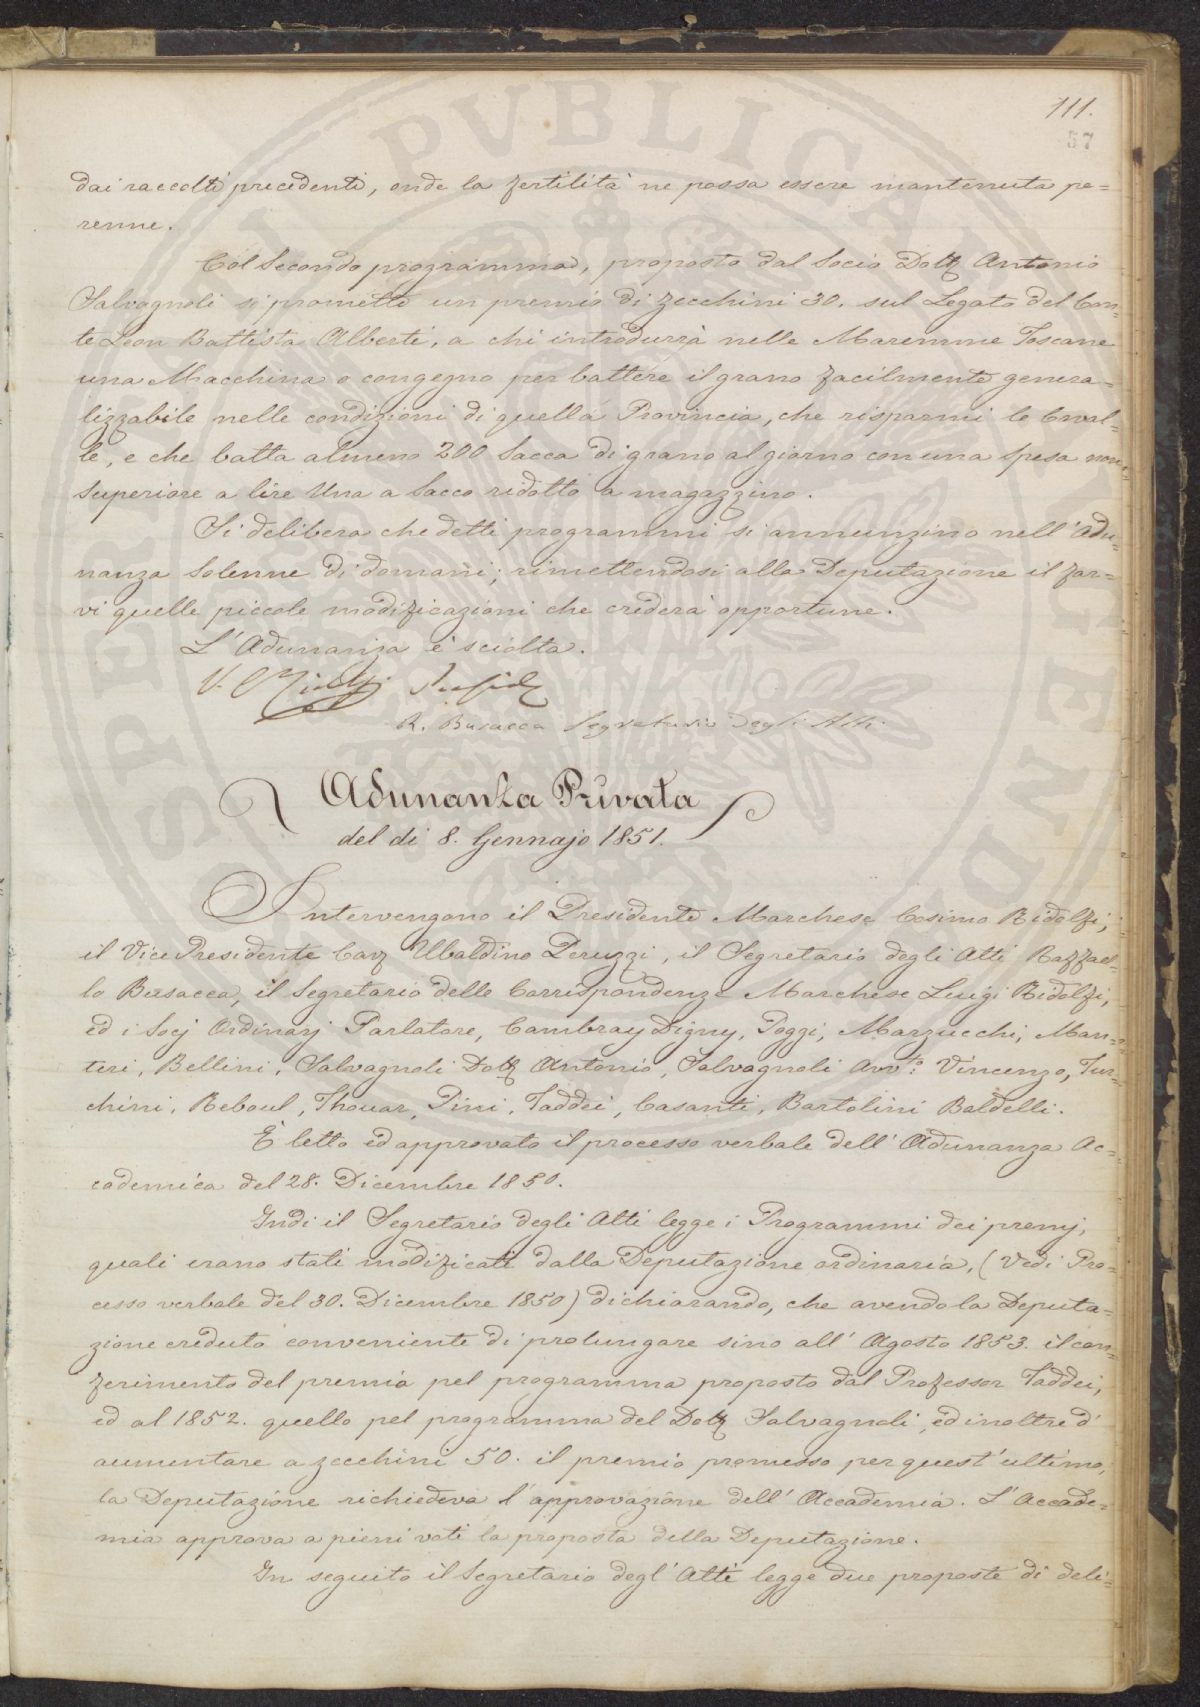 111.
57
dai raccolti precedenti, onde la fertilità ne possa essere mantenuta pe=
renne.
Col Secondo programma, proposto dal Socio Dott Antonio
Salvagnoli si promette un premio di zecchini 30. sul Legato del Con=
te Leon Battista Alberti, a chi introdurrà nelle Maremme Toscane
una Macchina o congegno per battere il grano facilmente genera=
lizzabile nelle condizioni di quella Provincia, che risparmi le Caval=
le, e che batta almeno 200 Sacca di grano al giorno con una spesa non
superiore a lire Una a Sacco ridotto a magazzino.
Si delibera che detti programmi si annunzino nell' Adu=
nanza Solenne di domani; rimettendosi alla Deputazione il far=
vi quelle piccole modificazioni che crederà opportune.
L' Adunanza è sciolta.
R. Busacca Segretario degli Atti
Adunanza Privata
del di 8. Gennajo 1851.
Intervengono il Presidente Marchese Cosimo Ridolfi,
il Vice Presidente Cav Ubaldino Peruzzi, il Segretario degli Atti Raffael=
lo Busacca, il Segretario delle Corrispondenze Marchese Luigi Ridolfi,
ed i Socj Ordinarj Parlatore, Cambray Digny, Poggi, Marzucchi, Man=
teri, Bellini, Salvagnoli Dott Antonio, Salvagnoli Avv.to Vincenzo, Tur=
chini, Reboul, Thouar, Pini, Taddei, Casanti, Bartolini Baldelli.
È letto ed approvato il processo verbale dell' Adunanza Ac=
cademica del 28. Dicembre 1850.
Indi il Segretario degli Atti legge i Programmi dei premj,
quali erano stati modificati dalla Deputazione ordinaria, (Vedi Pro=
cesso verbale del 30. Dicembre 1850) dichiarando, che avendo la Deputa=
zione creduto conveniente di prolungare sino all' Agosto 1853. il con=
ferimento del premio pel programma proposto dal Professor Taddei,
ed al 1852. quello pel programma del Dott Salvagnoli, ed inoltre d'
aumentare a zecchini 50. il premio promesso per quest' ultimo,
la Deputazione richiedeva l' approvazione dell' Accademia. L' Accade=
mia approva a pieni voti la proposta della Deputazione.
In seguito il Segretario degl' Atti legge due proposte di deli=